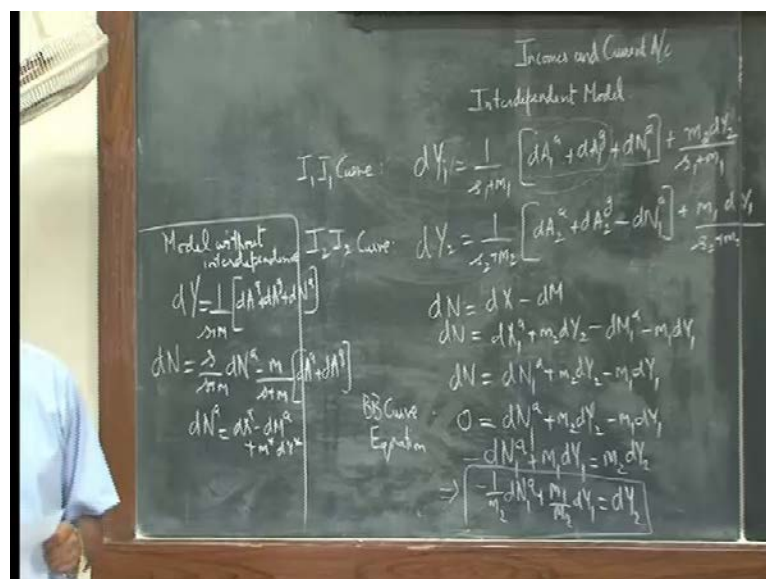 Incomes and Current A/c
Interdependent Model
I₁I₁ Curve: dY₁ = 1/(s₁+m₁) [dA₁ᵃ + dA₁ᵍ + dN₁ᵃ] + m₂dY₂/(s₁+m₁)
I₂I₂ Curve: dY₂ = 1/(s₂+m₂) [dA₂ᵃ + dA₂ᵍ - dN₁ᵃ] + m₁dY₁/(s₂+m₂)
dN = dX - dM
dN = dX₁ᵃ + m₂dY₂ - dM₁ᵃ - m₁dY₁
dN = dN₁ᵃ + m₂dY₂ - m₁dY₁
BB Curve Equation 0 = dN₁ᵃ + m₂dY₂ - m₁dY₁
-dN₁ᵃ + m₁dY₁ = m₂dY₂
⇒ -1/m₂ dN₁ᵃ + m₁/m₂ dY₁ = dY₂
Model without
interdependence
dY = 1/(s+m) [dAᵃ + dAᵍ + dNᵃ]
dN = s/(s+m) dNᵃ - m/(s+m) [dAᵃ + dAᵍ]
dNᵃ = dXᵃ - dMᵃ
+ m* dY*